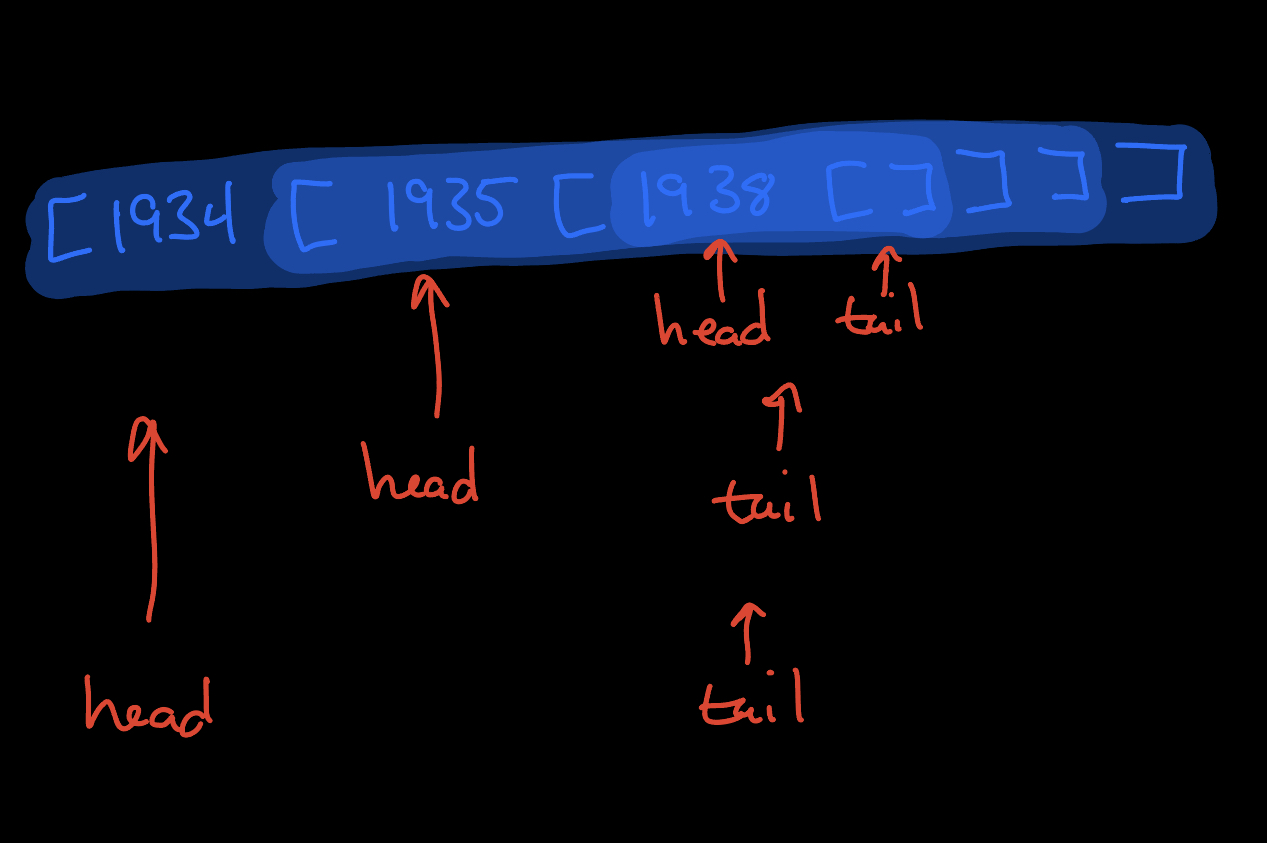 [1934 [ 1935 [ 1938 [ ] ] ] ]
head tail
head tail
head tail